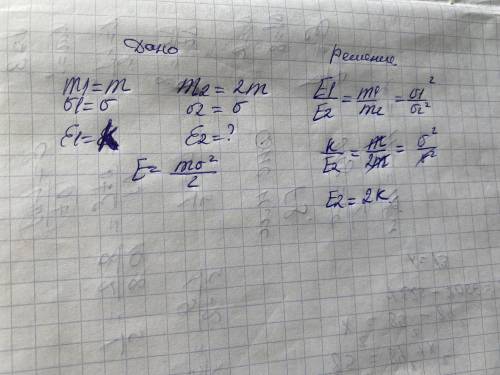 Дано
m1 = m m2 = 2m
σ1 = σ σ2 = σ
E1 = k E2 = ?
E = mσ²/2
Решение
E1/E2 = m1/m2 = σ1²/σ2²
k/E2 = m/2m = σ²/σ²
E2 = 2k